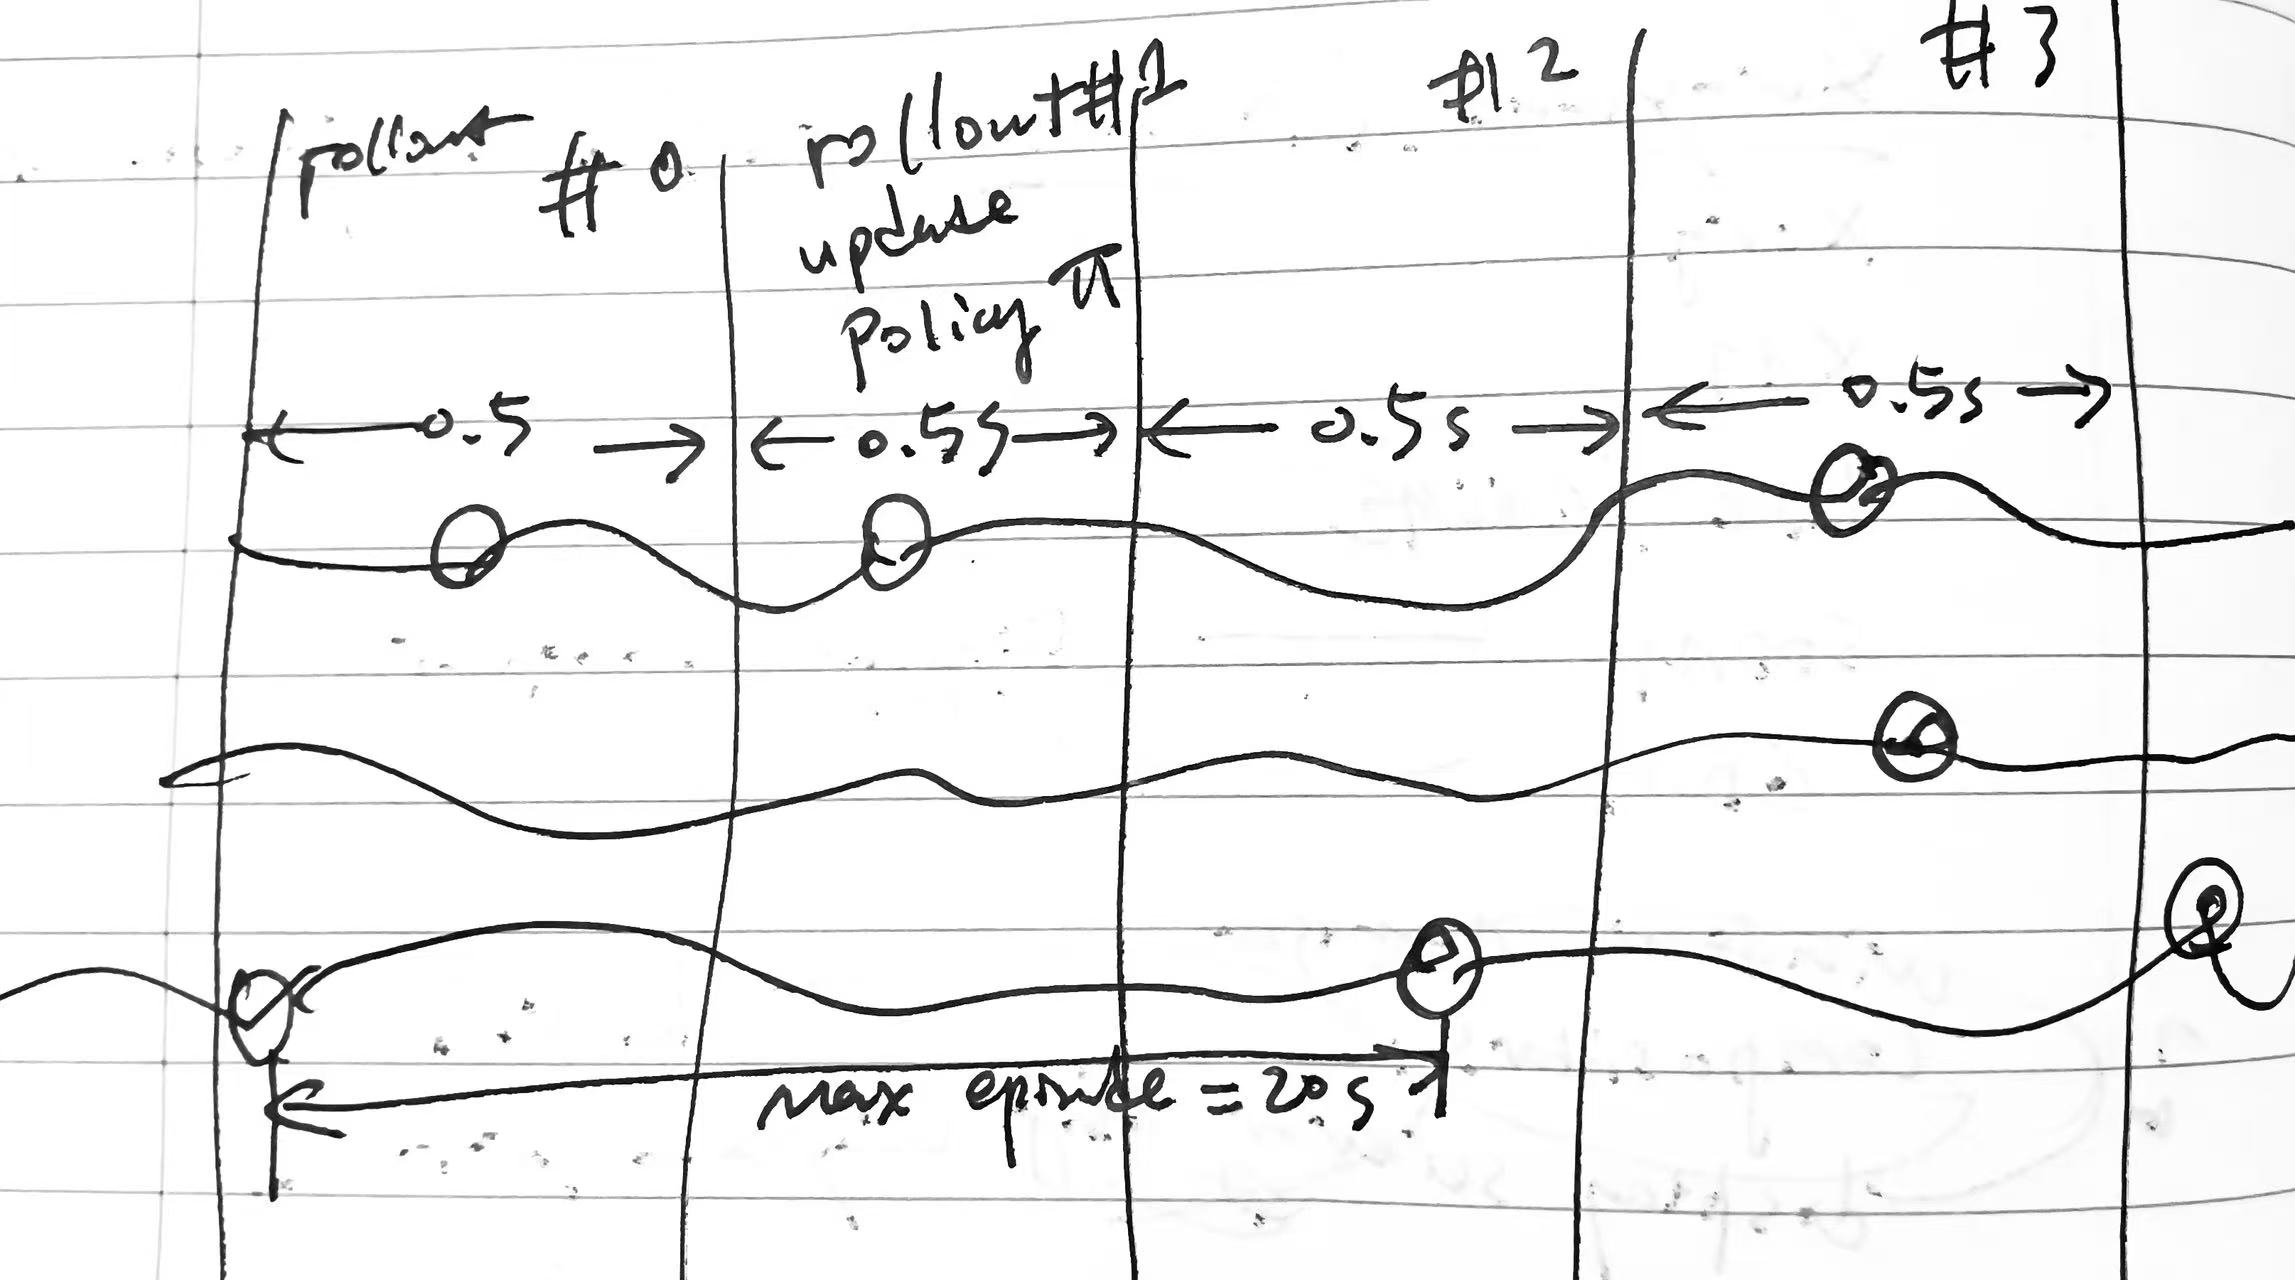 rollout #0
rollout #1
#2
#3
update
policy π
0.5
0.5s
0.5s
0.5s
max episode = 20s